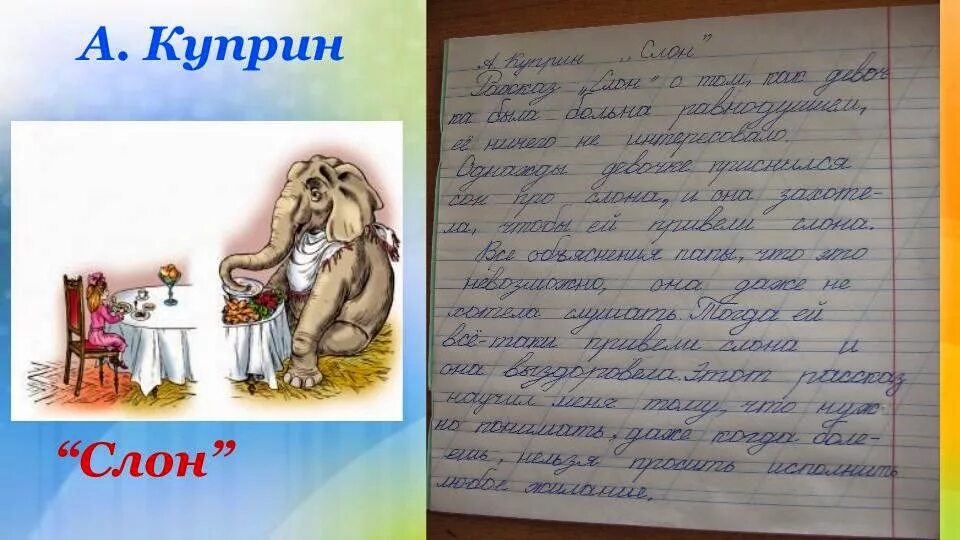 А. Куприн
“Слон”
А. Куприн „Слон”
Рассказ „Слон” о том, как девоч
ка была больна равнодушием,
её ничего не интересовало.
Однажды девочке приснился
сон про слона, и она захоте-
ла, чтобы ей привели слона.
Все объяснения папы, что это
невозможно, она даже не
хотела слушать. Тогда ей
всё-таки привели слона и
она выздоровела. Этот рассказ
научил меня тому, что нуж-
но понимать, даже когда боле-
ешь, нельзя просить исполнить
любое жилание.